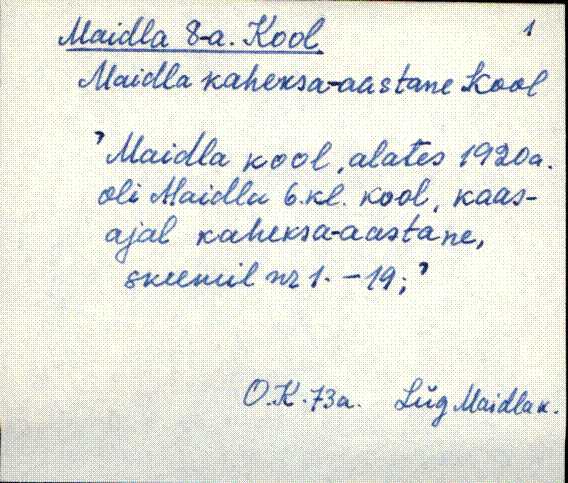 1
Maidla 8-a. Kool
Maidla kaheksa-aastane kool
"Maidla kool, alates 1920a.
oli Maidla 6.kl. kool, kaas-
ajal kaheksa-aastane,
skeemil nr 1. – 19;"
O.K. 73a. Lüg Maidla k.